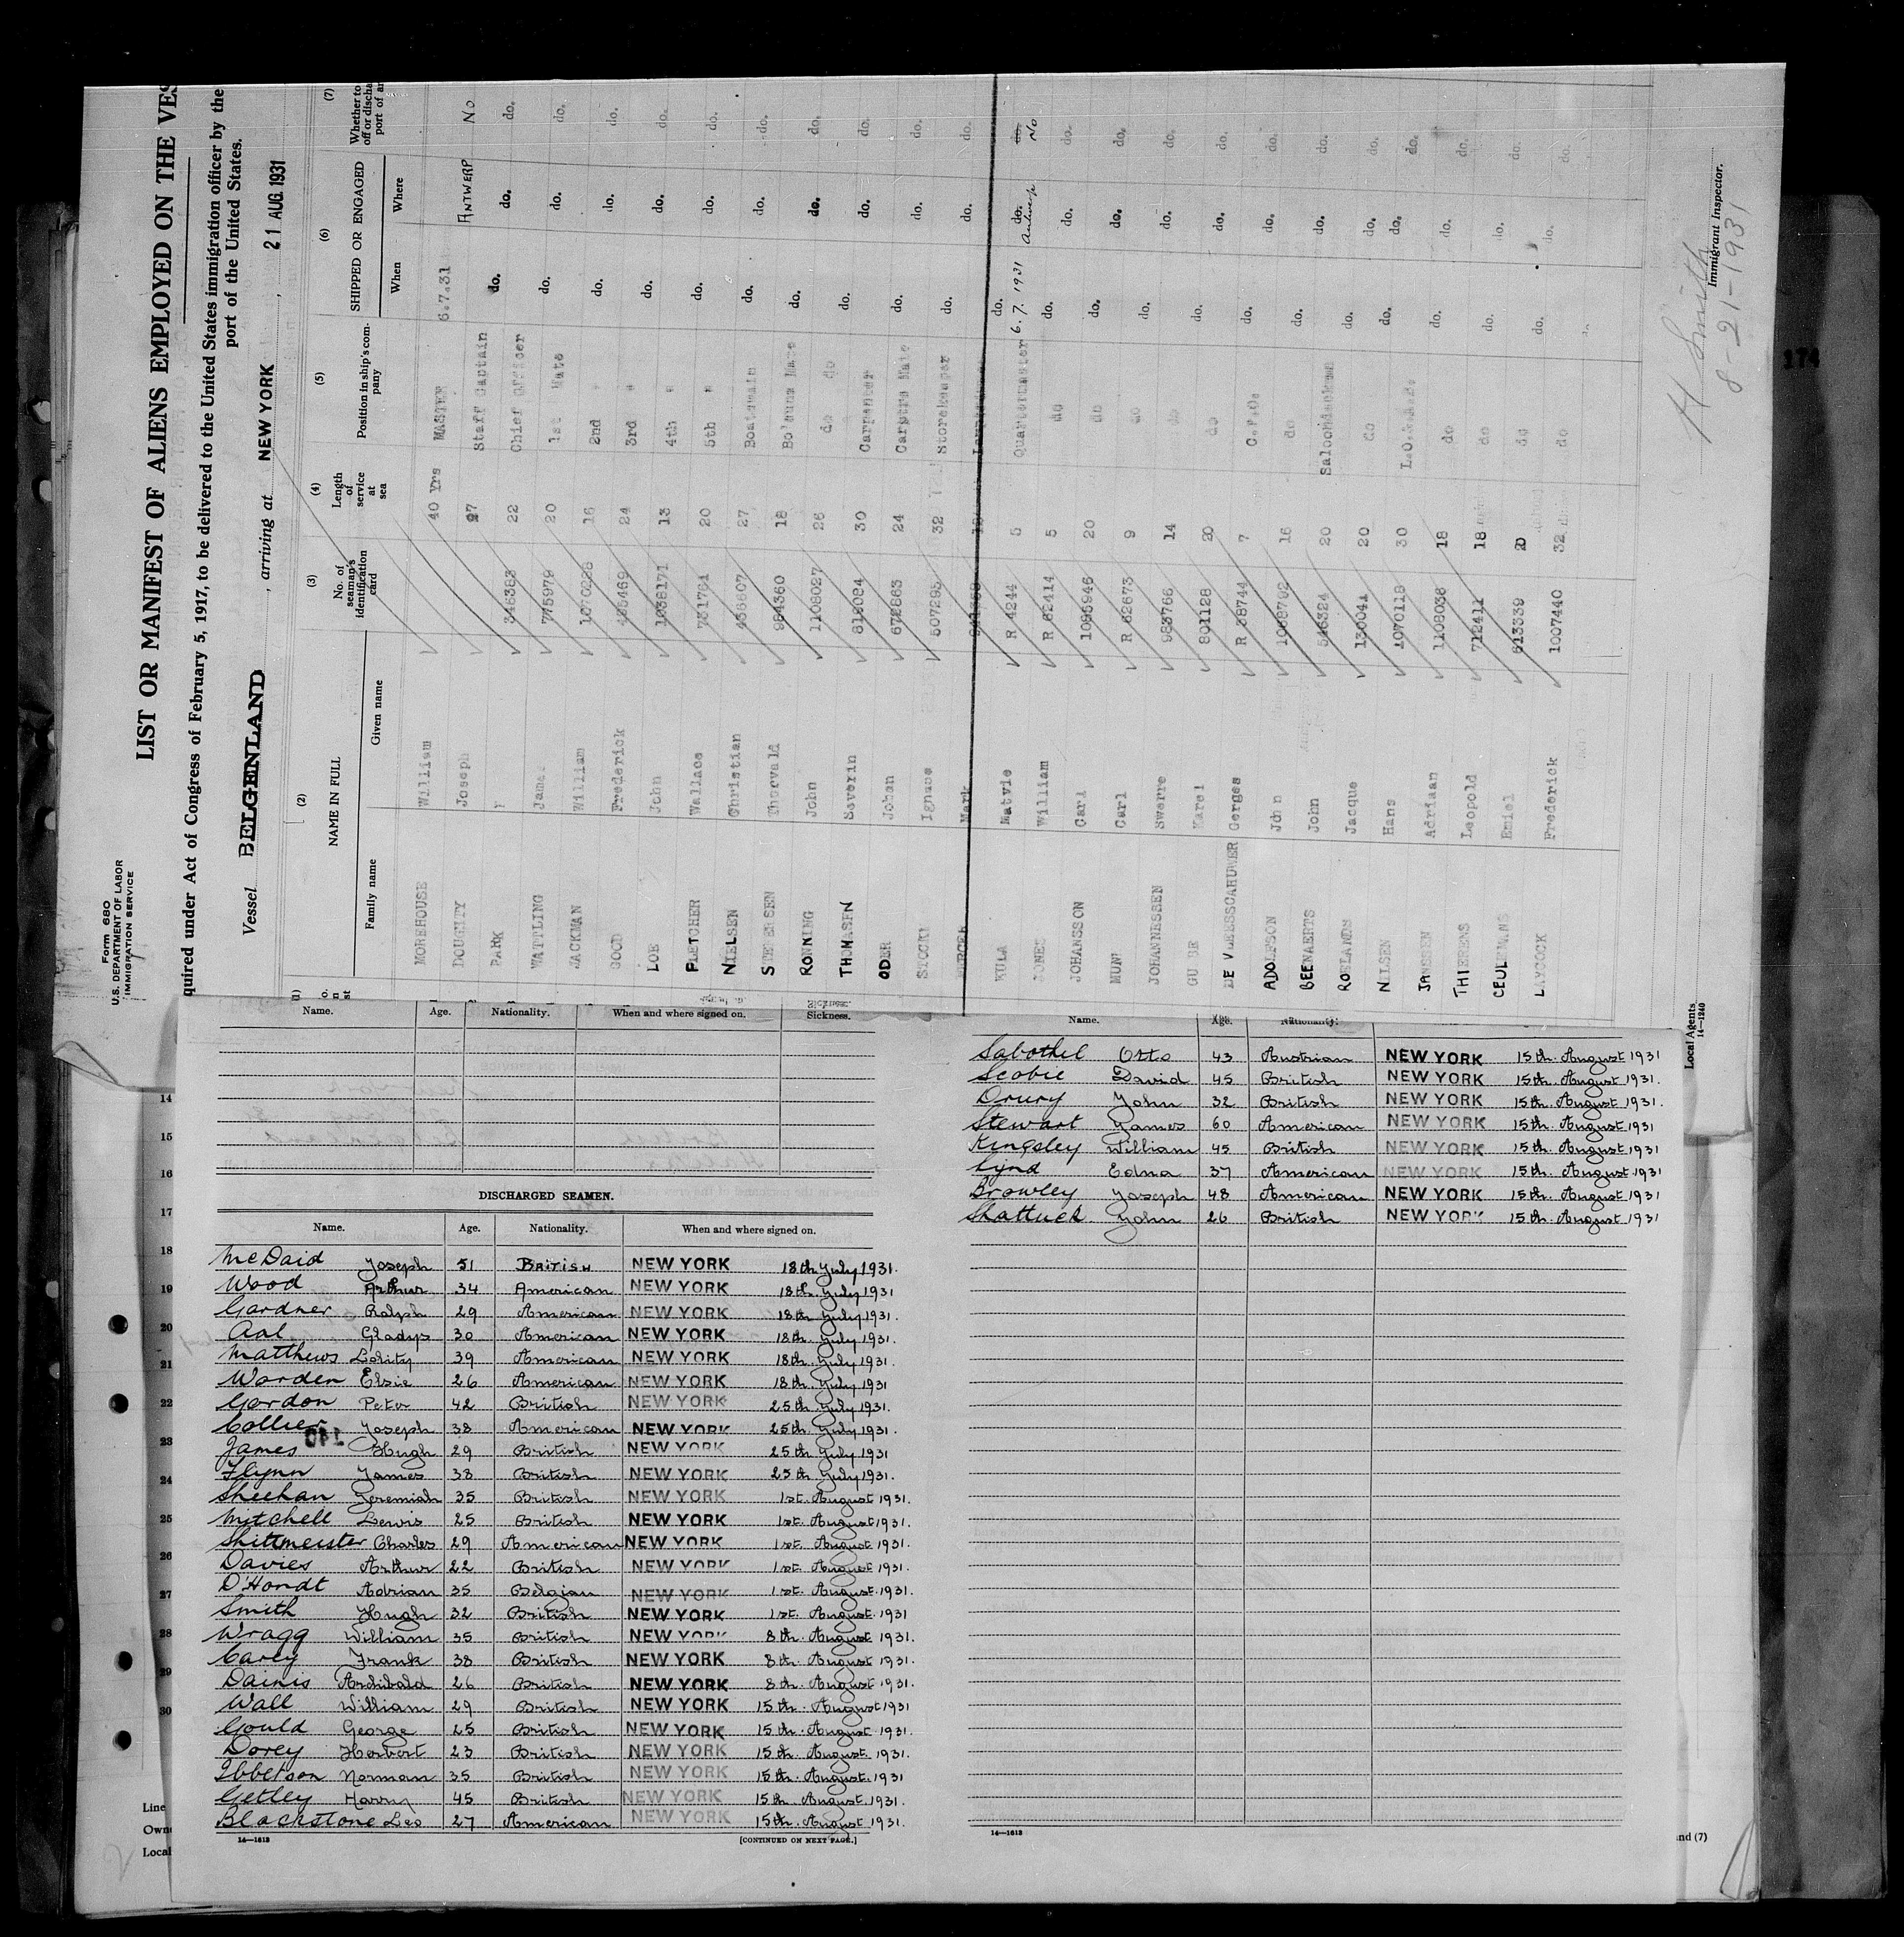 Form 680
U.S. DEPARTMENT OF LABOR
IMMIGRATION SERVICE
LIST OR MANIFEST OF ALIENS EMPLOYED ON THE VES
quired under Act of Congress of February 5, 1917, to be delivered to the United States immigration officer by the
port of the United States.
Vessel BELGENLAND, arriving at NEW YORK, 21 AUG. 1931
(1) (2) (3) (4) (5) (6) (7)
NAME IN FULL
Family name Given name
No. of seaman's identification card
Length of service at sea
Position in ship's company
SHIPPED OR ENGAGED
When Where
Whether to
off or discha
port of ar
MOREHOUSE William 40 Yrs MASTER 6.7.31 ANTWERP No
DOUGHTY Joseph 27 Staff Captain do. do. do.
PARK 346383 22 Chief Officer do. do. do.
WATTLING James 775979 20 1st Mate do. do. do.
JACKMAN William 1070228 16 2nd " do. do. do.
GOOD Frederick 24 3rd " do. do. do.
LOE John 1038171 13 4th " do. do. do.
FLETCHER Wallace 731784 20 5th " do. do. do.
NIELSEN Christian 436607 27 Boatswain do. do. do.
Thorvald 984360 18 Bo'suns Mate do. do. do.
RONNING John 1108027 26 do do do. do. do.
THOMASEN Severin 818084 30 Carpenter do. do. do.
ODER Johan 672863 24 Carptrs Mate do. do. do.
Ignace 507295 32 Storekeeper do. do. do.
Mark
KULA Matvie R 4244 5 Quartermaster 6.7.1931 Antwerp No
JONES William R 62414 5 do do. do. do.
JOHANSSON Carl 1095946 20 do do. do. do.
Carl R 62673 9 do do. do. do.
JOHANNESSEN Swerre 983766 14 do do. do. do.
Karel 801128 20 do do. do. do.
DE VLEESSCAHUWER Gerges R 38744 7 do. do. do.
ADOLFSON John 1068792 16 do do. do. do.
BEENAERTS John 546324 20 do. do. do.
ROELANDS Jacque 130041 20 do do. do. do.
NILSEN Hans 1070118 30 do. do. do.
JANSSEN Adriaan 1108036 18 do do. do. do.
THIERENS Leopold 712411 18 do do. do. do.
CEULEMANS Emiel 613339 20 do do. do. do.
LAYCOCK Frederick 1007440 32 do do. do. do.
H Smith
8-21-1931
Immigrant Inspector.
Local Agents
14—1240
174
Name. Age. Nationality. When and where signed on. Sickness.
14
15
16
17
18
19
20
21
22
23
24
25
26
27
28
29
30
DISCHARGED SEAMEN.
Name. Age. Nationality. When and where signed on.
McDaid Joseph 51 British NEW YORK 18th July 1931.
Wood Arthur 34 American NEW YORK 18th July 1931
Gardner Ralph 29 American NEW YORK 18th July 1931.
Aal Gladys 30 American NEW YORK 18th July 1931.
Matthews 39 American NEW YORK 18th July 1931.
Worden Elsie 26 American NEW YORK 18th July 1931
Gordon Peter 42 British NEW YORK 25th July 1931.
Collier Joseph 38 American NEW YORK 25th July 1931.
James Hugh 29 British NEW YORK 25th July 1931
Flynn James 38 British NEW YORK 25th July 1931.
Sheehan Jeremiah 35 British NEW YORK 1st. August 1931.
Mitchell Lewis 25 British NEW YORK 1st. August 1931.
Shittmeister Charles 29 American NEW YORK 1st. August 1931.
Davies Arthur 22 British NEW YORK 1st. August 1931.
D'Hondt Adrian 35 Belgian NEW YORK 1st. August 1931.
Smith Hugh 32 British NEW YORK 1st. August 1931
Wragg William 35 British NEW YORK 8th. August 1931.
Carey Frank 38 British NEW YORK 8th. August 1931.
Dainis Archibald 26 British NEW YORK 8th. August 1931.
Wall William 29 British NEW YORK 15th. August 1931
Gould George 25 British NEW YORK 15th. August 1931.
Dorey Herbert 23 British NEW YORK 15th. August 1931.
Ibbetson Norman 35 British NEW YORK 15th. August. 1931
Getley Harry 45 British NEW YORK 15th. August 1931.
Blackstone Leo 27 American NEW YORK 15th. August 1931.
14—1613
[CONTINUED ON NEXT PAGE.]
Name. Age. Nationality.
Sabothel Otto 43 Austrian NEW YORK 15th. August 1931
Scobie David 45 British NEW YORK 15th. August 1931.
Drury John 32 British NEW YORK 15th. August 1931.
Stewart James 60 American NEW YORK 15th. August 1931
Kingsley William 45 British NEW YORK 15th. August 1931
Lynd Edna 37 American NEW YORK 15th. August 1931
Browley Joseph 48 American NEW YORK 15th. August 1931
Shattuck John 26 British NEW YORK 15th. August 1931
14—1613
Line
Own
Local
nd (7)